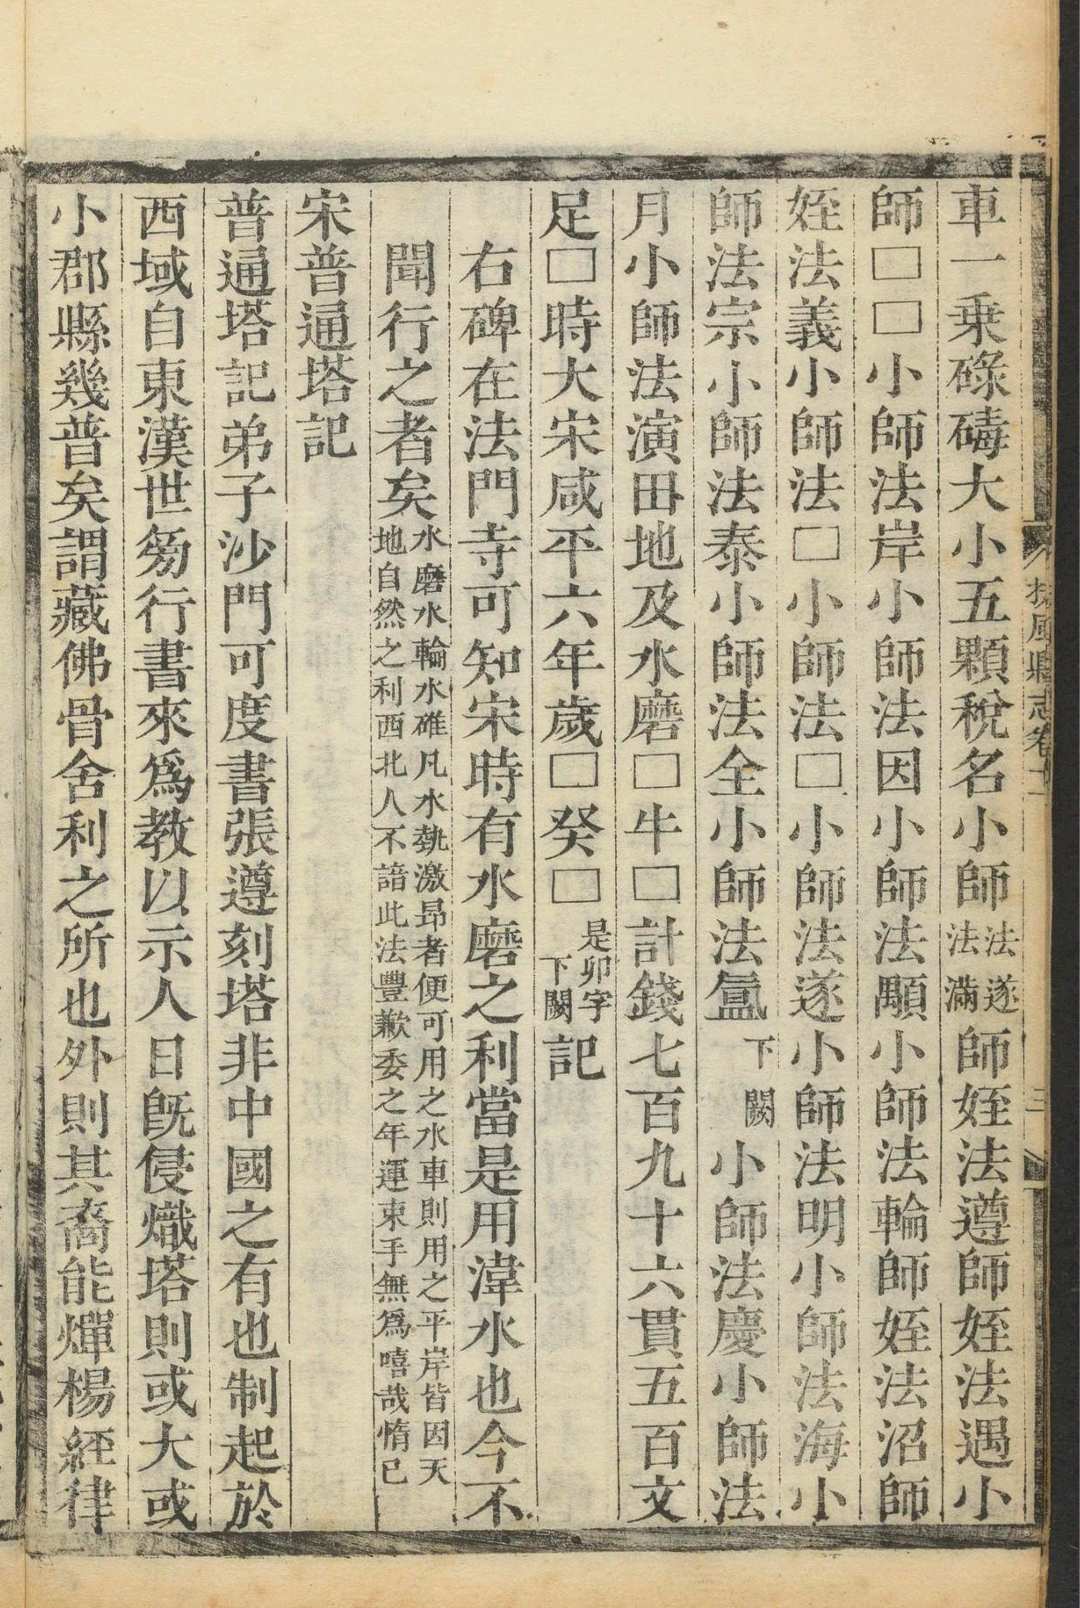 車一乗碌碡大小五顆稅名小師法遂法滿師姪法遵師姪法遇小
師□□小師法岸小師法因小師法顒小師法輪師姪法沼師
姪法義小師法□小師法□小師法遂小師法明小師法海小
師法宗小師法泰小師法全小師法氳下闕小師法慶小師法
月小師法演田地及水磨□牛□計錢七百九十六貫五百文
足□時大宋咸平六年歲□癸□是卯字下闕記
右碑在法門寺可知宋時有水磨之利當是用湋水也今不
聞行之者矣水磨水輪水碓凡水埶激昻者便可用之水車則用之平岸皆因天地自然之利西北人不諳此法豐歉委之年運束手無爲嘻哉惰已
宋普通塔記
普通塔記弟子沙門可度書張遵刻塔非中國之有也制起於
西域自東漢世芴行書來爲教以示人日旣侵熾塔則或大或
小郡縣幾普矣謂藏佛骨舍利之所也外則其裔能燀楊經律
扶風縣志卷十
三